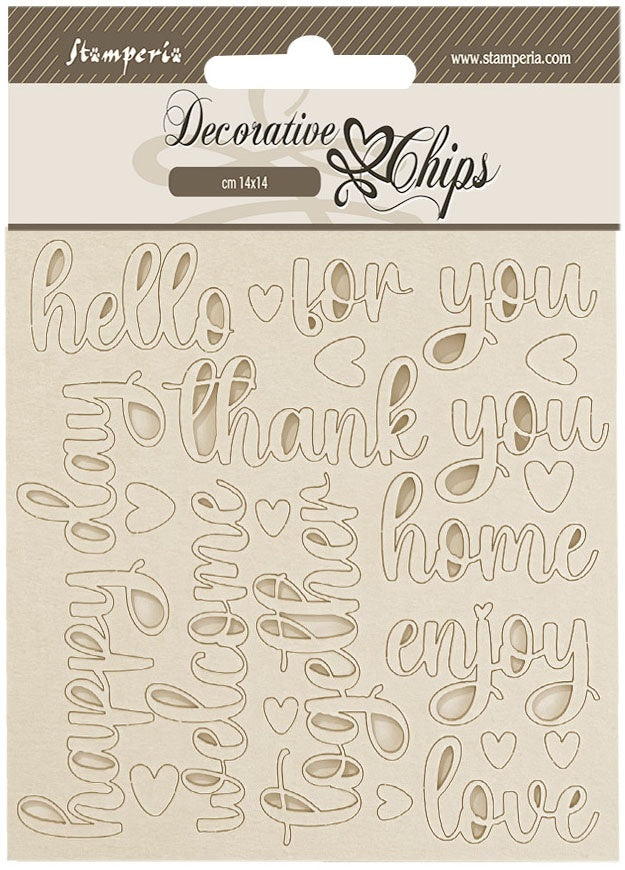 Stamperia
www.stamperia.com
Decorative Chips
cm 14x14
hello for you
thank you
happy day
welcome
together
home
enjoy
love